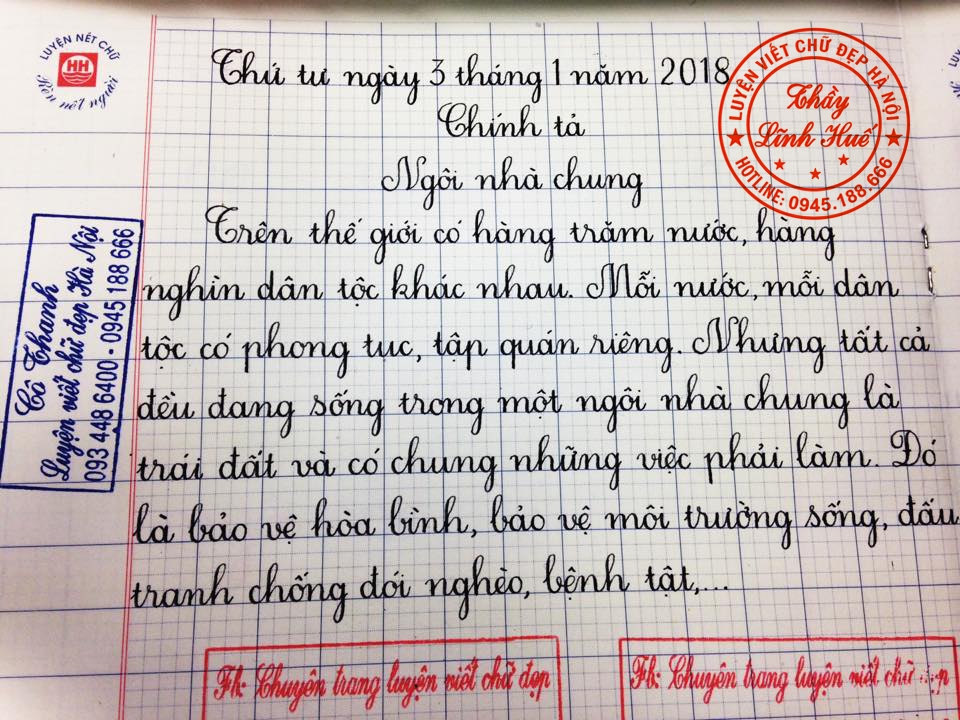 LUYỆN NÉT CHỮ
HH
Rèn nết người
Thứ tư ngày 3 tháng 1 năm 2018
Chính tả
Ngôi nhà chung
Trên thế giới có hàng trăm nước, hàng
nghìn dân tộc khác nhau. Mỗi nước, mỗi dân
tộc có phong tuc, tập quán riêng. Nhưng tất cả
đều đang sống trong một ngôi nhà chung là
trái đất và có chung những việc phải làm. Đó
là bảo vệ hòa bình, bảo vệ môi trường sống, đấu
tranh chống đói nghèo, bệnh tật,...
LUYỆN VIẾT CHỮ ĐẸP HÀ NỘI
Thầy
Lĩnh Huế
HOTLINE: 0945.188.666
Cô Thanh
Luyện viết chữ đẹp Hà Nội
093 448 6400 - 0945 188 666
Fb: Chuyên trang luyện viết chữ đẹp
Fb: Chuyên trang luyện viết chữ đẹp